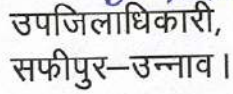 उपजिलाधिकारी,
सफीपुर–उन्नाव।